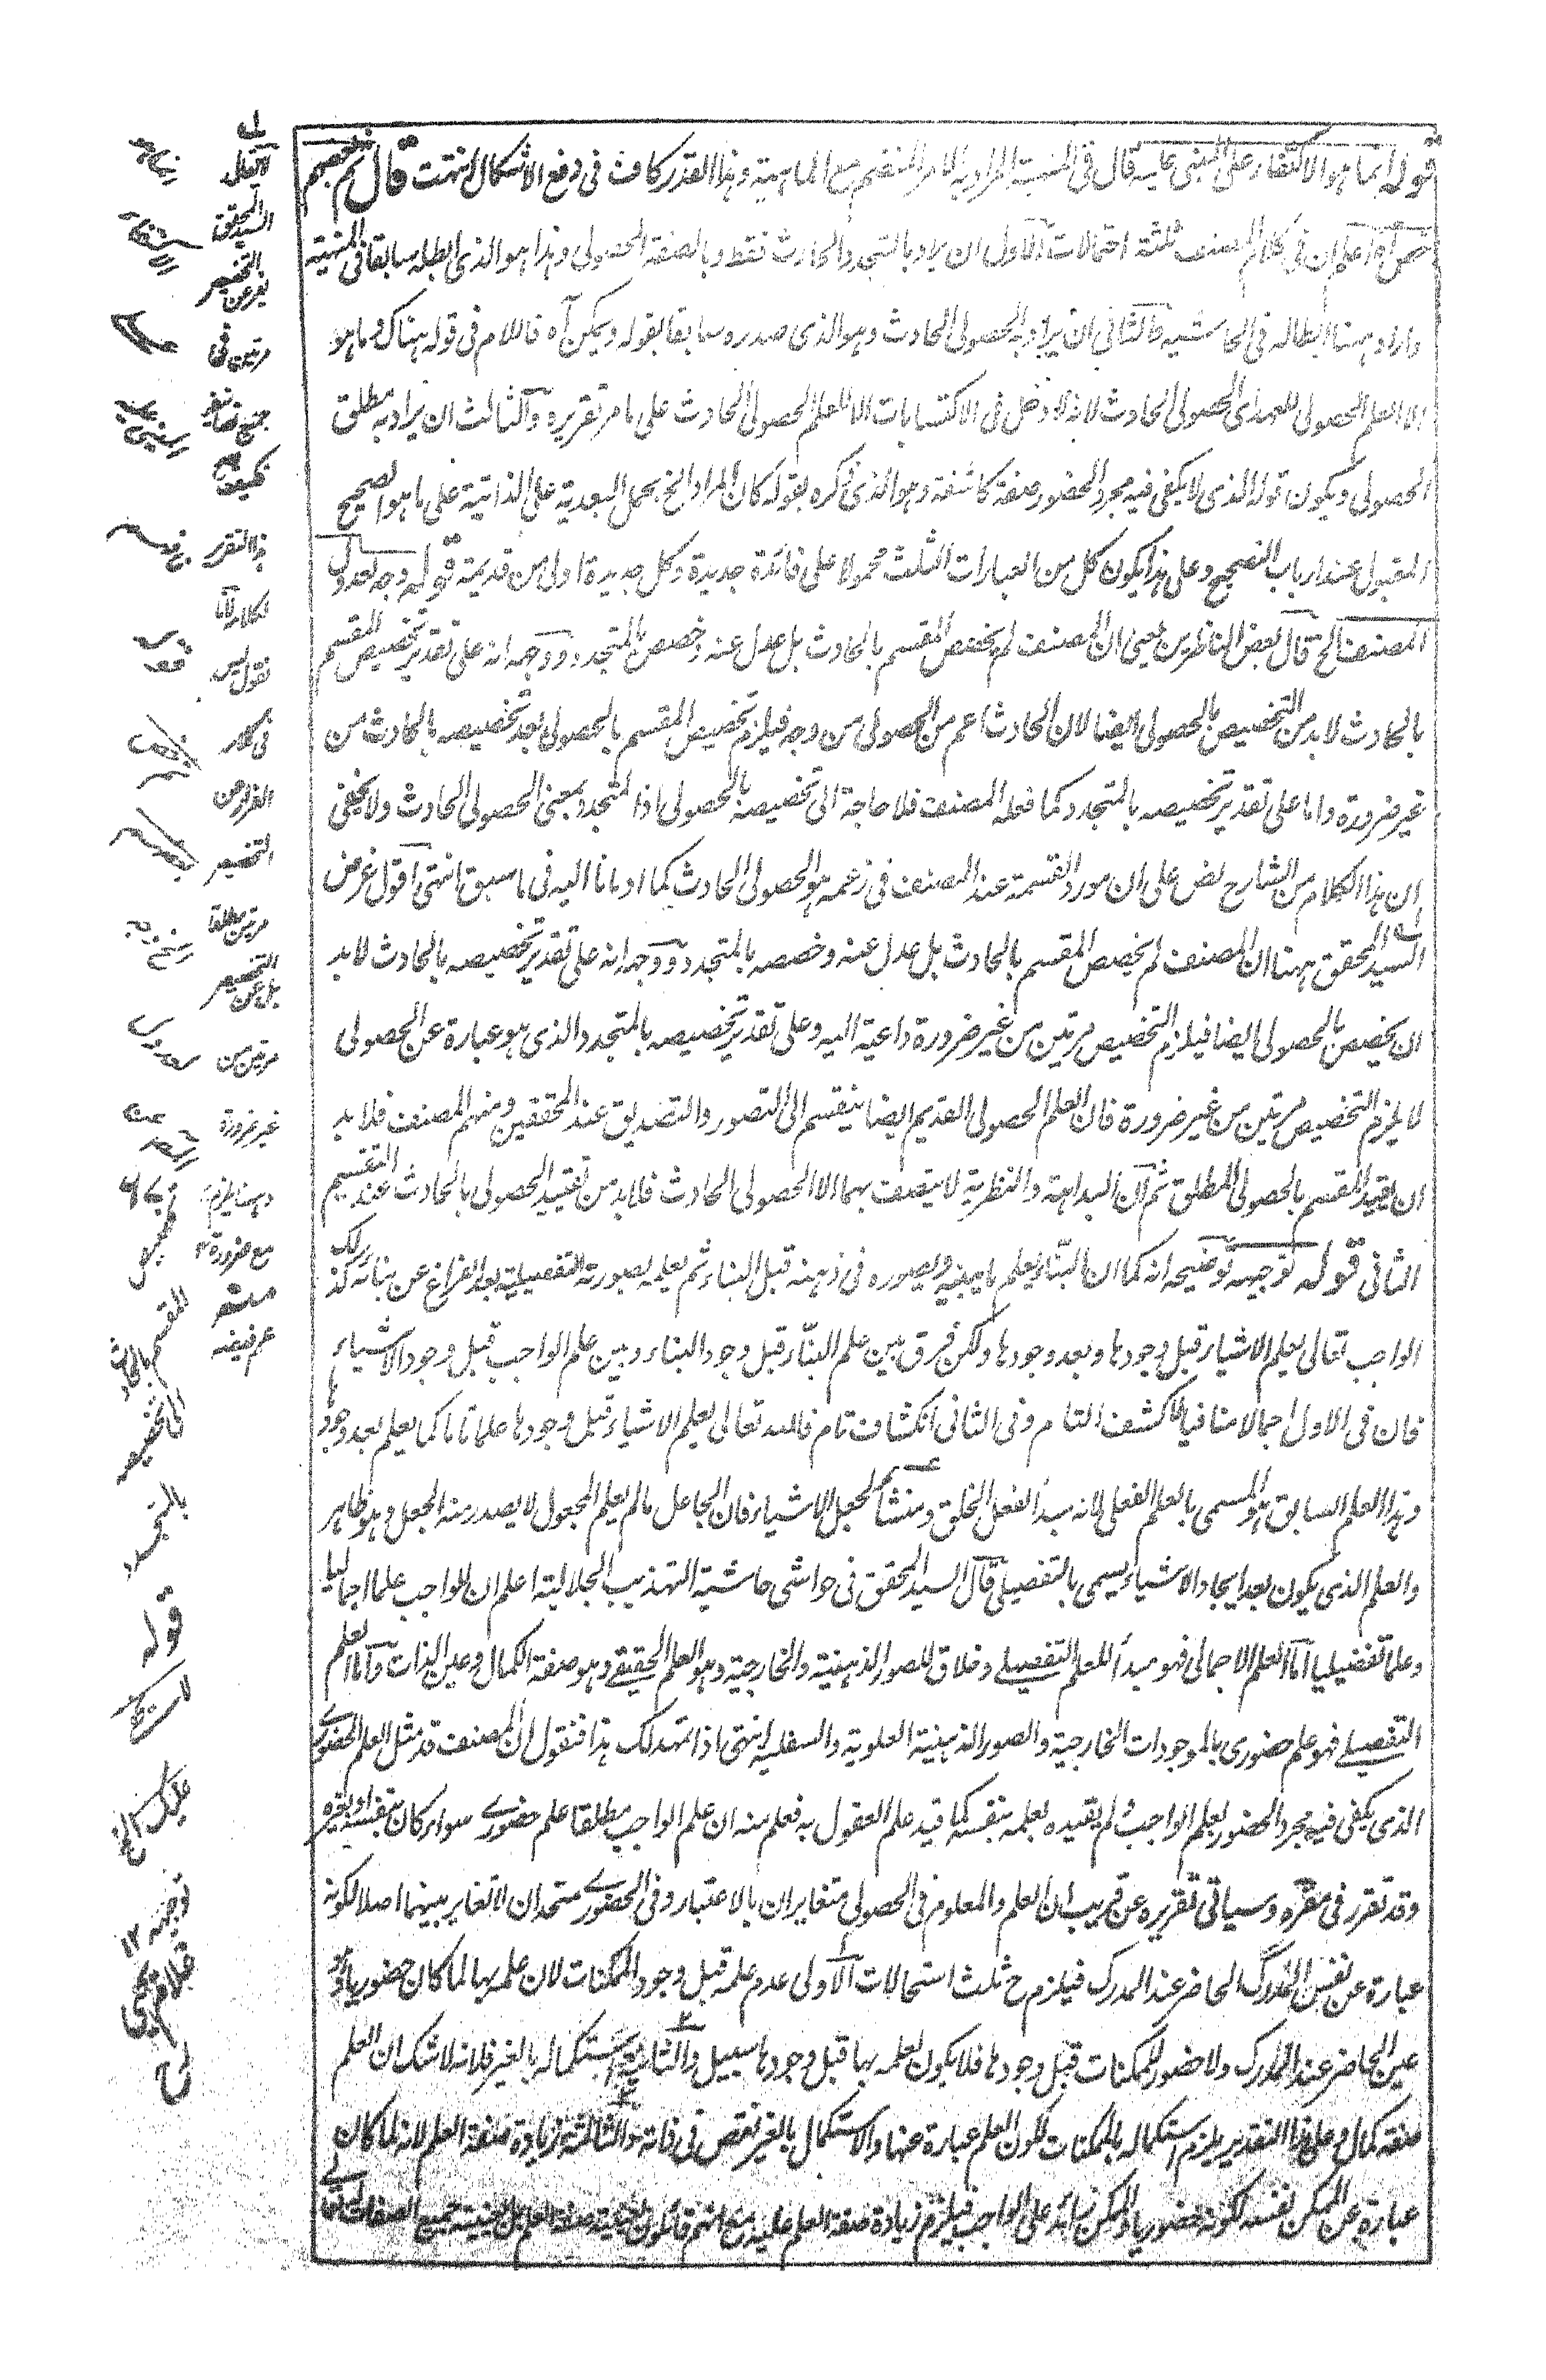 قوله انما هو الاكتفاء على المبنى عليه قال فى المنهية المراد به الامر المنضم مع الماهية وهذا القدر كاف فى دفع الاشكال انتهت قال ثم خصصهم
اعلم ان فى كلام المصنف ثلثة احتمالات الاول ان يراد بالمتجدد الحادث فقط وبالصفة الحصولى وهذا هو الذى ابطله سابقا فى المنهية
واراد ههنا ابطاله فى الحاشية فالثانى ان يراد به الحصولى الحادث وهو الذى صدره سابقا بقوله ويمكن آه فاللام فى قوله هناك وما هو
الا العلم الحصولى للعهد اى الحصولى الحادث لانه لا دخل فى الاكتسابات الا للعلم الحصولى الحادث على ما مر تقريره والثالث ان يراد به مطلق
الحصولى ويكون قوله الذى لا يكفى فيه مجرد الحضور صفة كاشفة وهو الذى ذكره بقوله كان المراد الخ بحمل البعدية على الذاتية على ما هو الصحيح
المقبول عند ارباب التصحيح وعلى هذا يكون كل من العبارات الثلث محمولا على فائدة جديدة وكل جديدة اولى من قديمة قوله وجه لعدول
المصنف الخ قال بعض الناظرين يعنى ان المصنف لم يخصص المقسم بالحادث بل عدل عنه وخصص بالمتجدد ووجهه انه على تقدير تخصيص المقسم
بالحادث لا بد من التخصيص بالحصولى ايضا لان الحادث اعم من الحصولى من وجه فيلزم تخصيص المقسم بالحصولى بعد تخصيصه بالحادث من
غير ضرورة واما على تقدير تخصيصه بالمتجدد كما فعله المصنف فلا حاجة الى تخصيصه بالحصولى اذ المتجدد بمعنى الحصولى الحادث ولا يخفى
ان هذا الكلام من الشارح نص على ان مورد القسمة عند المصنف فى زعمه هو الحصولى الحادث كما اومانا اليه فى ما سبق انتهى اقول غرض
السيد المحقق ههنا ان المصنف لم يخصص المقسم بالحادث بل عدل عنه وخصصه بالمتجدد ووجهه انه على تقدير تخصيصه بالحادث لا بد
ان يخصص بالحصولى ايضا فيلزم التخصيص مرتين من غير ضرورة داعية اليه وعلى تقدير تخصيصه بالمتجدد الذى هو عبارة عن الحصولى
لا يلزم التخصيص مرتين من غير ضرورة فان العلم الحصولى القديم ايضا ينقسم الى التصور والتصديق عند المحققين ومنهم المصنف فلا بد
ان يقيد المقسم بالحصولى المطلق ثم ان البداهة والنظرية لا يتصف بهما الا الحصولى الحادث فلا بد من تقييد الحصولى بالحادث عند التقسيم
الثانى قوله توجيهه توضيحه انه كما ان البنّاء يعلم ما يبنيه ويصوره فى ذهنه قبل البناء ثم يعلمه بصورته التفصيلية بعد الفراغ عن بنائه كذلك
الواجب تعالى يعلم الاشياء قبل وجودها وبعد وجودها ولكن فرق بين علم البنّاء قبل وجود البناء وبين علم الواجب قبل وجود الاشياء
فان فى الاول اجمالا منافيا للكشف التام وفى الثانى انكشاف تام فالله تعالى يعلم الاشياء قبل وجودها علما تاما كما يعلم بعد وجودها
وهذا العلم السابق هو المسمى بالعلم الفعلى لانه مبدأ الفعل الخلق ومنشأ لجعل الاشياء فان الجاعل ما لم يعلم المجعول لا يصدر منه الجعل وهو ظاهر
والعلم الذى يكون بعد ايجاد الاشياء يسمى بالتفصيلى قال السيد المحقق فى حواشى حاشية التهذيب الجلالية اعلم ان للواجب علما اجماليا
وعلما تفصيليا اما العلم الاجمالى فهو مبدأ للعلم التفصيلى وخلاق للصور الذهنية والخارجية وهو العلم الحقيقى وهو صفة الكمال وعين الذات واما العلم
التفصيلى فهو علم حضورى بالموجودات الخارجية والصور الذهنية العلوية والسفلية انتهى اذا تمهد لك هذا فنقول ان المصنف قد مثل العلم الحضورى
الذى يكفى فيه مجرد الحضور بعلم الواجب ولم يقيده بعلمه بنفسه كما قيد علم العقول به فعلم منه ان علم الواجب مطلقا علم حضورى سواء كان بنفسه او بغيره
وقد تقرر فى مقره وسياتى تقريره عن قريب ان العلم والمعلوم فى الحصولى متغايران بالاعتبار وفى الحضورى متحدان لا تغاير بينهما اصلا لكونه
عبارة عن نفس المدرك الحاضر عند المدرك فيلزم ح ثلث استحالات الاولى عدم علمه قبل وجود الممكنات لان علمه بها لما كان حضوريا وهو
عين الحاضر عند المدرك ولا حضور للممكنات قبل وجودها فلا يكون لعلمه بها قبل وجودها سبيل والثانية استكماله بالغير فلانه لا شك ان العلم
صفة كمال وعلى هذا التقدير يلزم استكماله بالممكنات لكون العلم عبارة عنها والاستكمال بالغير نقص فى ذاته والثالثة زيادة صفة العلم لانه لما كان
عبارة عن الممكن نفسه لكونه حضوريا والممكن زائد على الواجب فيلزم زيادة صفة العلم عليه مع انهم قائلون بعينية صفة العلم بل بعينية جميع الصفات
السيد المحقق
مرتين فى
هذا التقرير
نقول ليس
الفرار عن
التخصيص
مرتين مطلقا
بل عن التخصيص
مرتين من
غير ضرورة
وههنا يلزم
مع ضرورة ١٢
قوله
توجيهه ١٢